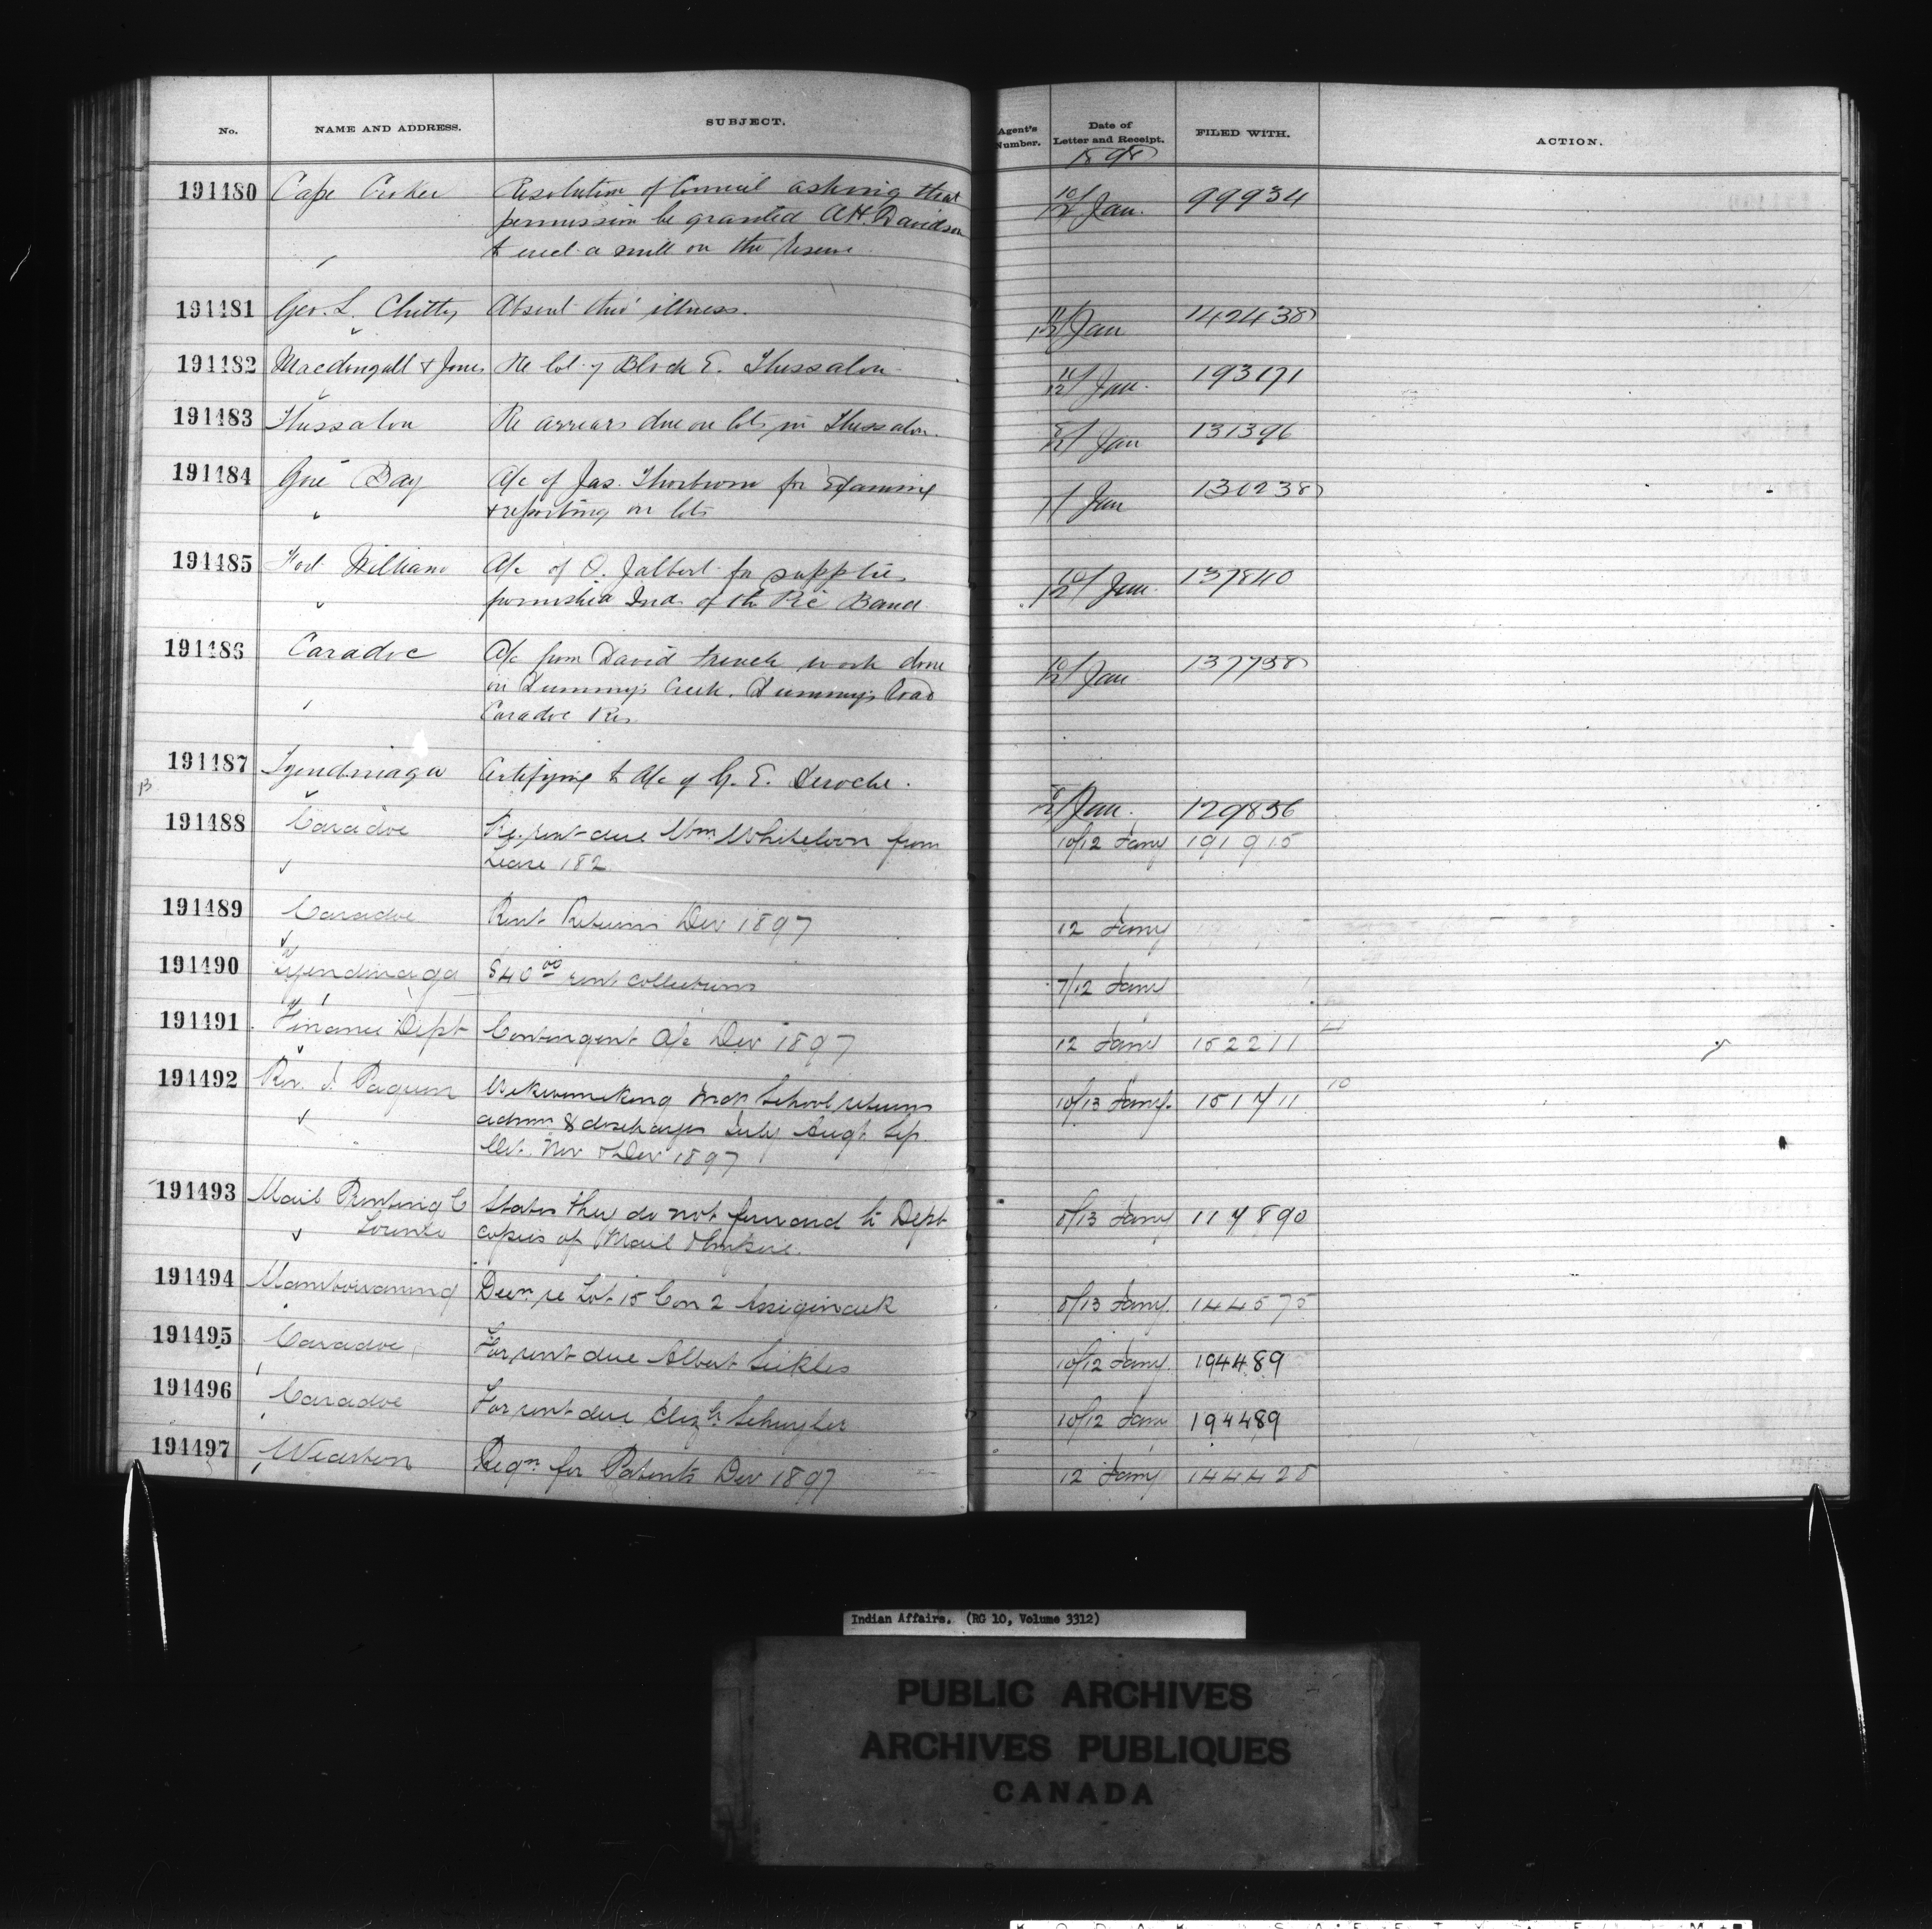 No. NAME AND ADDRESS. SUBJECT. Agent's Number. Date of Letter and Receipt. FILED WITH. ACTION.
1898
191480 Cape Croker Resolution of Council asking that 10/12 Jan. 99934
permission be granted A.H. Davidson
to erect a mill on the reserve
191481 Geo. L. Chitty Absent thro' illness. 11/12 Jan 142438
191482 Macdougall & Jones Re lot 7 Block E. Thessalon 11/12 Jan. 193171
191483 Thessalon Re arrears due on lots in Thessalon. 8/12 Jan 131396
191484 Gore Bay A/c of Jas. Thorburn for Examing Jan 130238
& reporting on lots
191485 Fort William A/c of O. Jalbert for supplies 10/12 Jan. 137840
furnished Inds of the Pic Band
191486 Caradoc A/c from David French work done 10/12 Jan 137738
on Dummy's Creek. Dummy's Road
Caradoc Res
191487 Tyendinaga Certifying to A/c of G. E. Deroche. 8/12 Jan. 129836
B
191488 Caradoc Re. rent due Wm Whiteloon from 10/12 Jany 191915
Lease 182
191489 Caradoc Rent Returns Dec 1897 12 Jany
191490 Tyendinaga $40 00 rent collections 7/12 Jany
191491 Finance Dept Contingent A/c Dec 1897 12 Jany 152211
191492 Rev. J. Paquin Wikwemikong Indn School returns 10/13 Jany. 151711 10
admns & discharges July Augt Sep
Oct. Nov & Dec 1897
191493 Mail Printing Co States they do not forward to Dept 8/13 Jany 117890
Toronto copies of Mail & Empire.
191494 Manitowaning Decn re Lot 15 Con 2 Assiginack 8/13 Jany. 144575
191495 Caradoc For rent due Albert Sickles 10/12 Jany. 194489
191496 Caradoc For rent due Elizh Schuyler 10/12 Jany 194489
191497 Wiarton Reqn for Patents Dec 1897 12 Jany 144428
Indian Affairs. (RG 10, Volume 3312)
PUBLIC ARCHIVES
ARCHIVES PUBLIQUES
CANADA